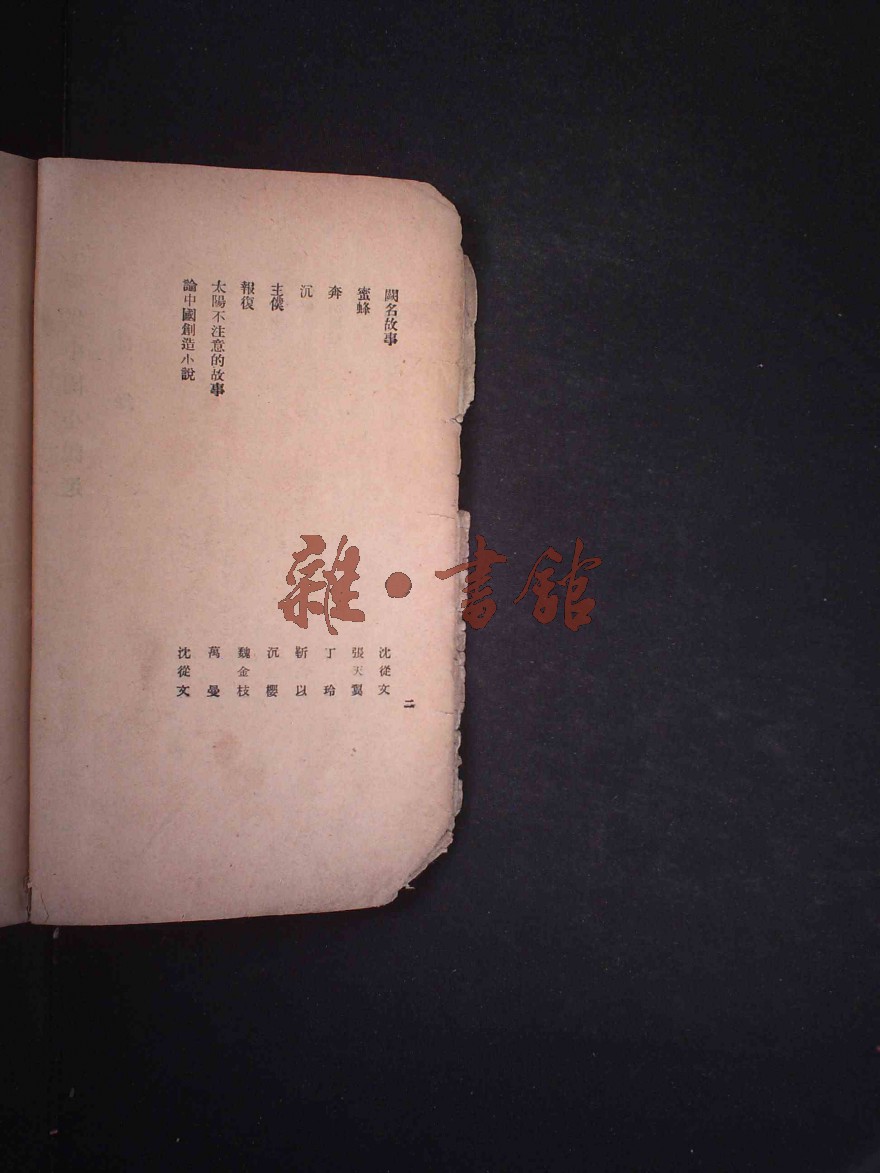 闕名故事 沈從文
蜜蜂 張天翼
奔 丁玲
沉 靳以
主僕 沉櫻
報復 魏金枝
太陽不注意的故事 萬曼
論中國創造小說 沈從文
二
雜·書館